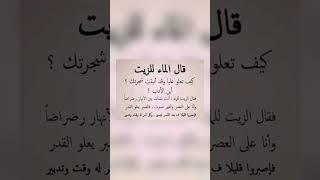 قال الماء للزيت
كيف تعلو علينا وقد أنبتت شجرتك ؟
أين الأدب ؟
فقال الزيت للماء : أنت نشأت بين الأنهار رضراضاً
وأنا على العصر والقهر صبرت ، فبالصبر يعلو القدر
فإصبروا قليلا ف بعد العسر تيسير ، وكل أمر له وقت وتدبير